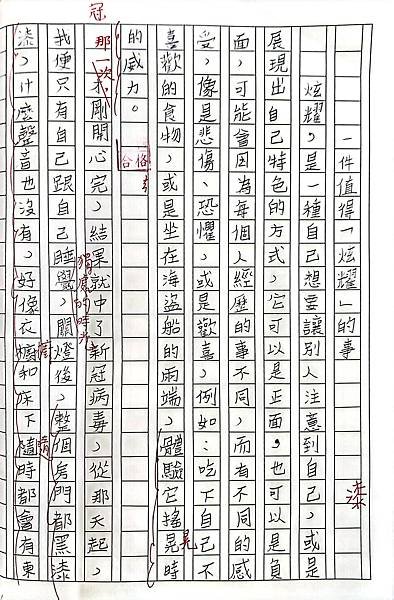 一件值得「炫耀」的事
炫耀,是一種自己想要讓別人注意到自己,或是
展現出自己特色的方式,它可以是正面,也可以是負
面,可能會因為每個人經歷的事不同,而有不同的感
受,像是悲傷、恐懼,或是歡喜,例如:吃下自己不
喜歡的食物,或是坐在海盜船的兩端,體驗它搖晃時
晃
的威力。
合格
冠
那一次,
剛開心完,結果就中了新冠病毒,從那天起,
我便只有自己跟自己睡覺,關燈後,整個房門都黑漆
漆,什麼聲音也沒有,好像衣櫥和床下隨時都會有東
隨
漆